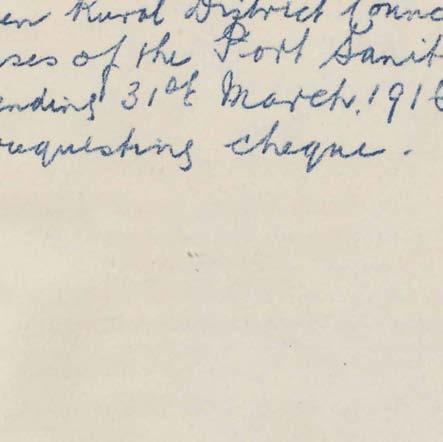 en Rural District Counc
ses of the Port Sanit
ending 31st March, 191
requesting cheque.